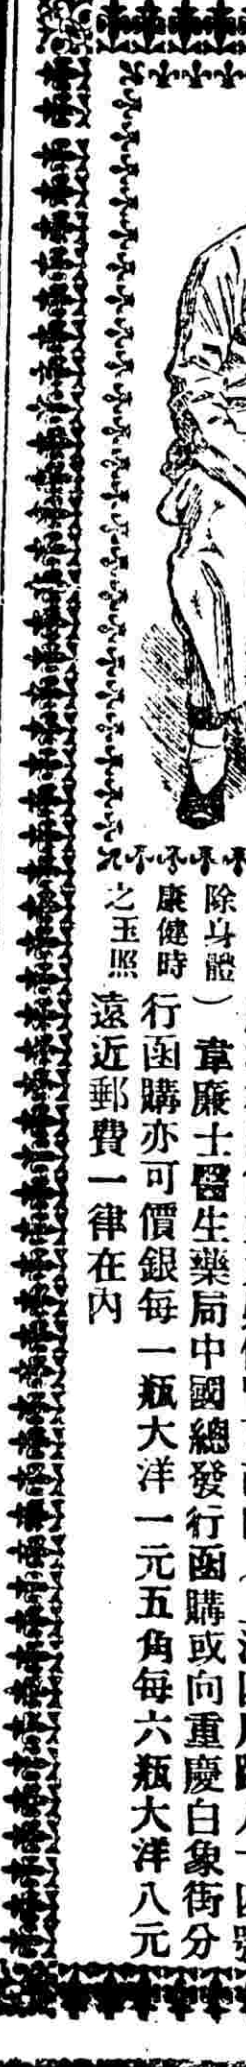 除身體
康健時
之玉照
）韋廉士醫生藥局中國總發行函購或向重慶白象街分
行函購亦可價銀每一瓶大洋一元五角每六瓶大洋八元
遠近郵費一律在內